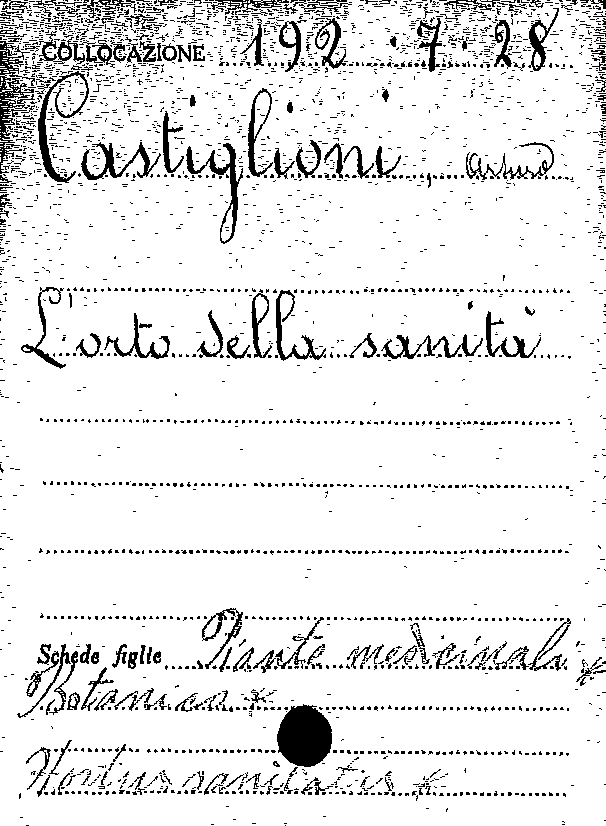 COLLOCAZIONE 192.7.28
Castiglioni, Arturo
L'orto della sanità
Schede figlie Piante medicinali *
Botanica *
Hortus sanitatis *